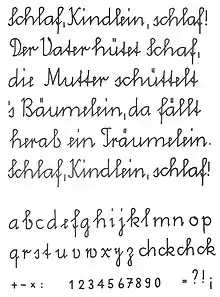 Schlaf, Kindlein, schlaf!
Der Vater hütet Schaf,
die Mutter schüttelt
's Bäumelein, da fällt
herab ein Träumelein.
Schlaf, Kindlein, schlaf!
a b c d e f g h i j k l m n o p
q r s t u v w x y z ch ck ch ck
+ - × : 1 2 3 4 5 6 7 8 9 0 = ? ! ;